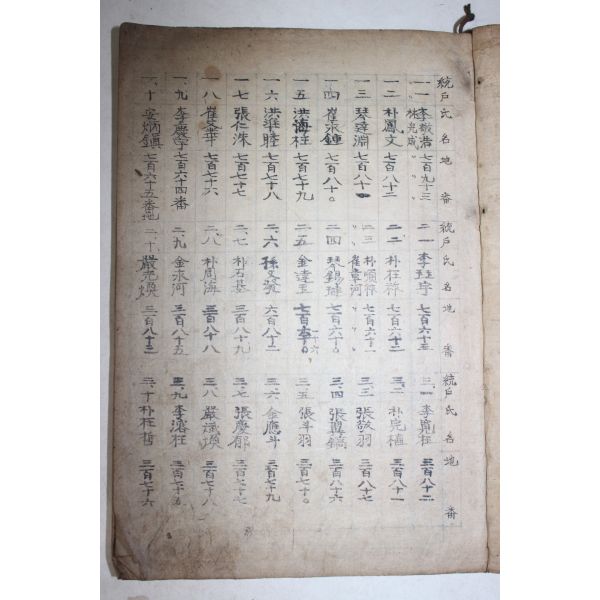 統戶氏名地番
一一李敬浩七百九十三
林完成
一二朴鳳文七百八十二
一三琴達淵七百八十一
一四崔永鍾七百八十。
一五洪海枉七百七十九
一六洪準睦七百七十八
一七張仁洙七百七十七
一八崔 七百七十六
一、九李慶宇七百六十四番
一、十安炳鎭七百六十五番地
統戶氏名地番
二一李 宇七百六十五
二二朴枉 七百六十二
二三朴順 七百六十一
〃〃崔章河〃〃
二四琴錫 七百六十。
二五金達玉七百 十。
二、六孫文發六百八十二
二、七朴石基三百八十九
二、八朴周海三百八十八
二、九金永河三百八十五
二、十嚴光煥三百八十三
統戶氏名地番
三、一李寬枉三百八十二
三、二朴完植三百八十一
三、三張敬羽三百八十七
三、四張 鎬三百八十六
三、五張斗羽三百七十。
三、六金應斗三百七十九
三、七張慶郁三百七十七
三、八嚴 煥三百七十八
三、九李濬枉三百七十五
三、十朴枉哲三百七十六